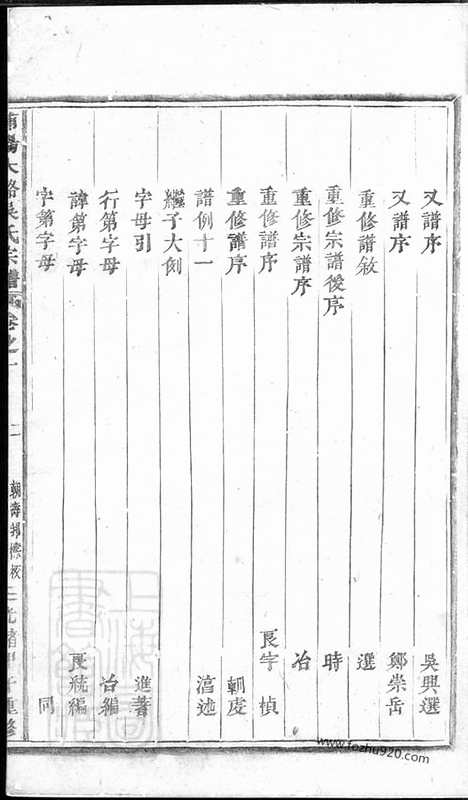 又譜序 吳興選
又譜序 鄭崇岳
重修譜敘 選
重修宗譜後序 時
重修宗譜序 冶
重修譜序 良宇 楨
重修譜序 朝虔
譜例十一 濇述
繼子大例
字母引 進著
行第字母 冶編
諱第字母 良統編
字第字母 同
大路吳氏宗譜 卷之一 二
重修
上海圖書館
www.fozhu920.com